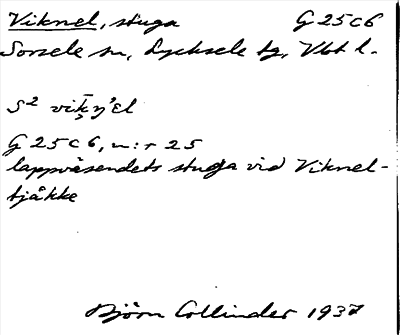 Viknel, stuga G 25 c 6
Sorsele sn, Lycksele tg, Vbt l.
G 25 c 6, n:r 25
lappväsendets stuga vid Viknel-
tjåkke
Björn Collinder 1937